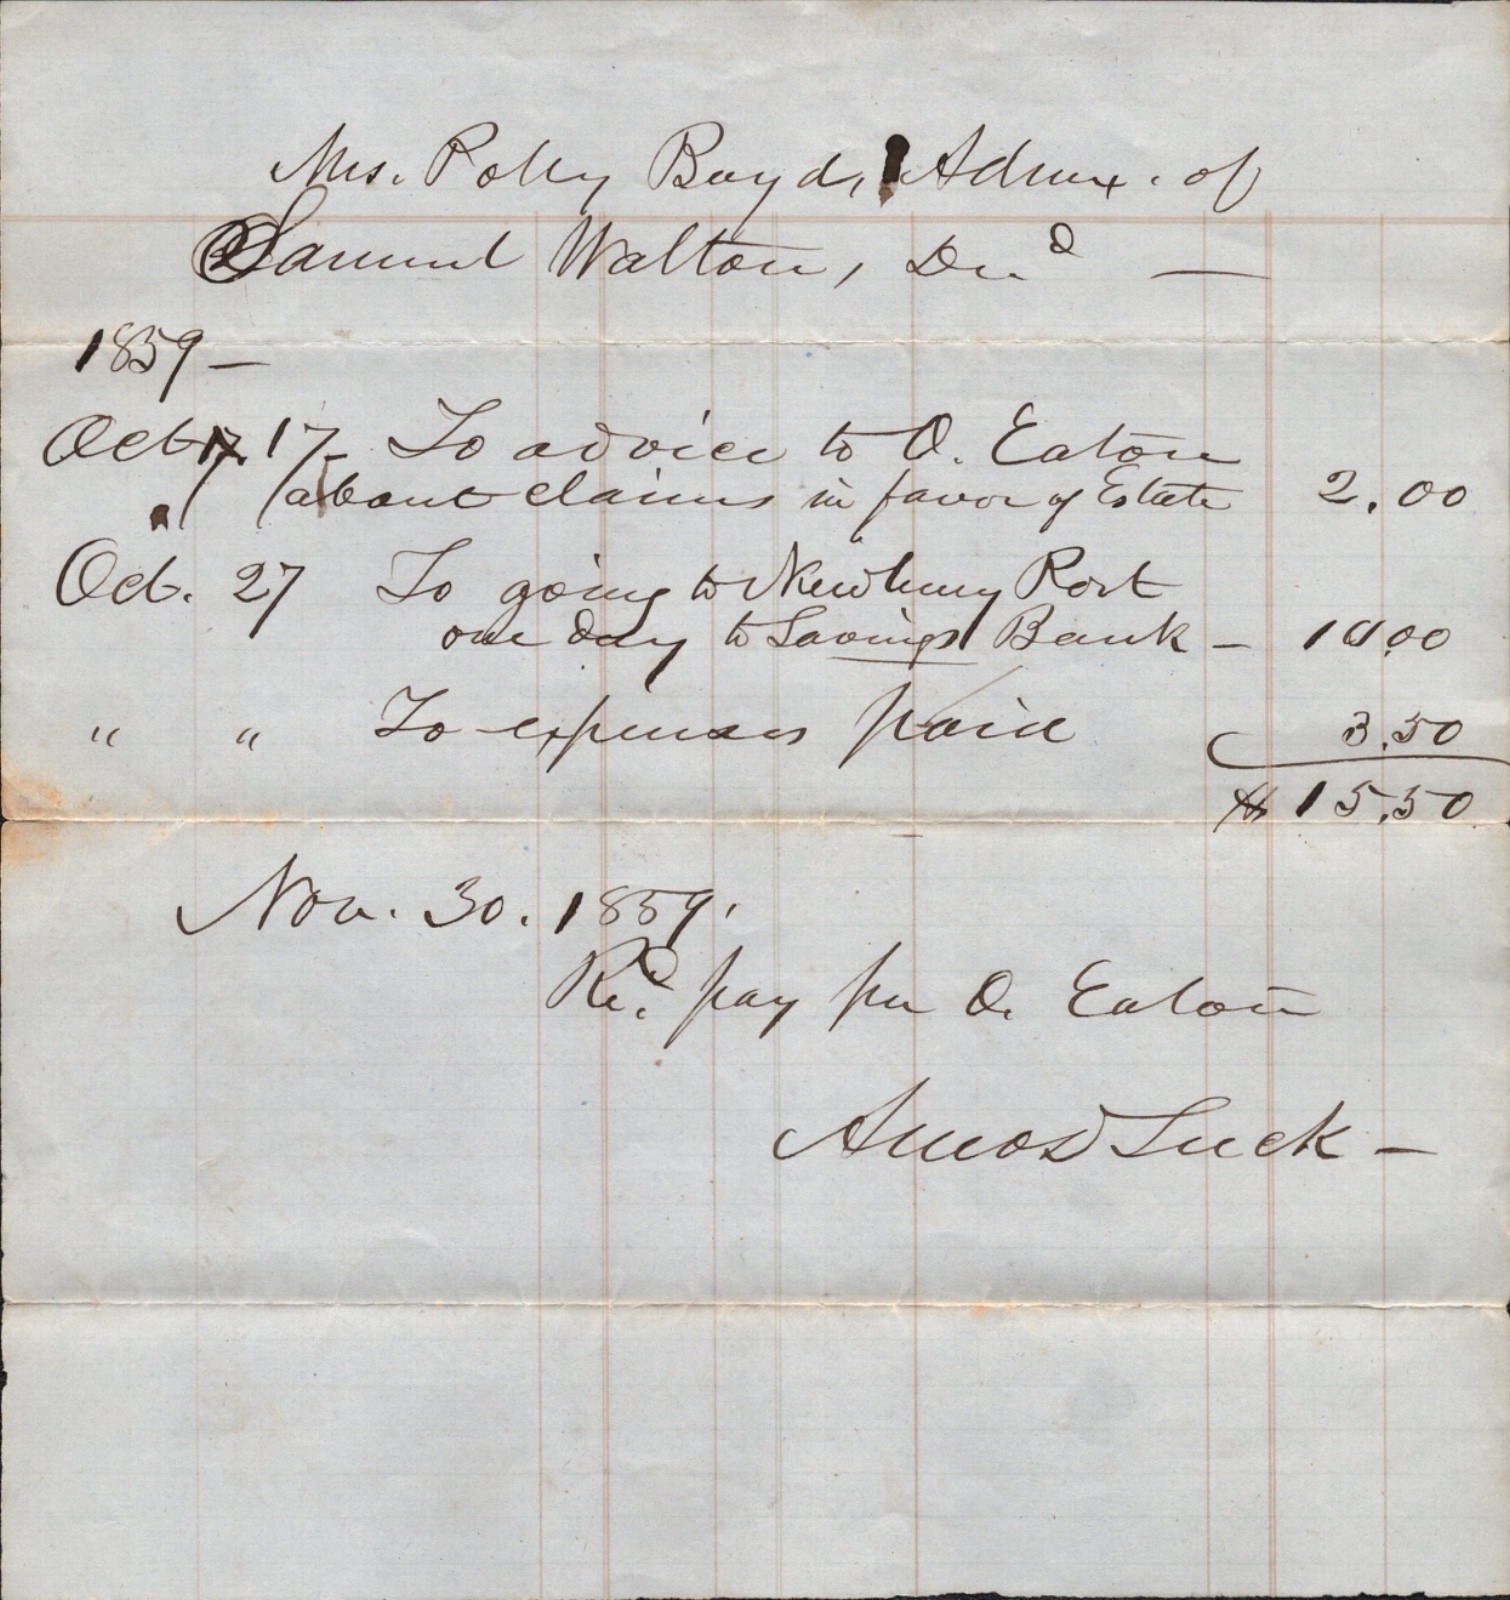 Mrs. Polly Boyd, Admx. of
Samuel Walton, Decd —
1859 —
Oct. 17 - To advice to O. Eaton
about claims in favor of Estate 2.00
Oct. 27 To going to Newbury Port
one day to Savings Bank - 10.00
" " To expenses paid 3.50
$ 15.50
Nov. 30. 1859.
Recd. pay per O. Eaton
Amos Tuck -